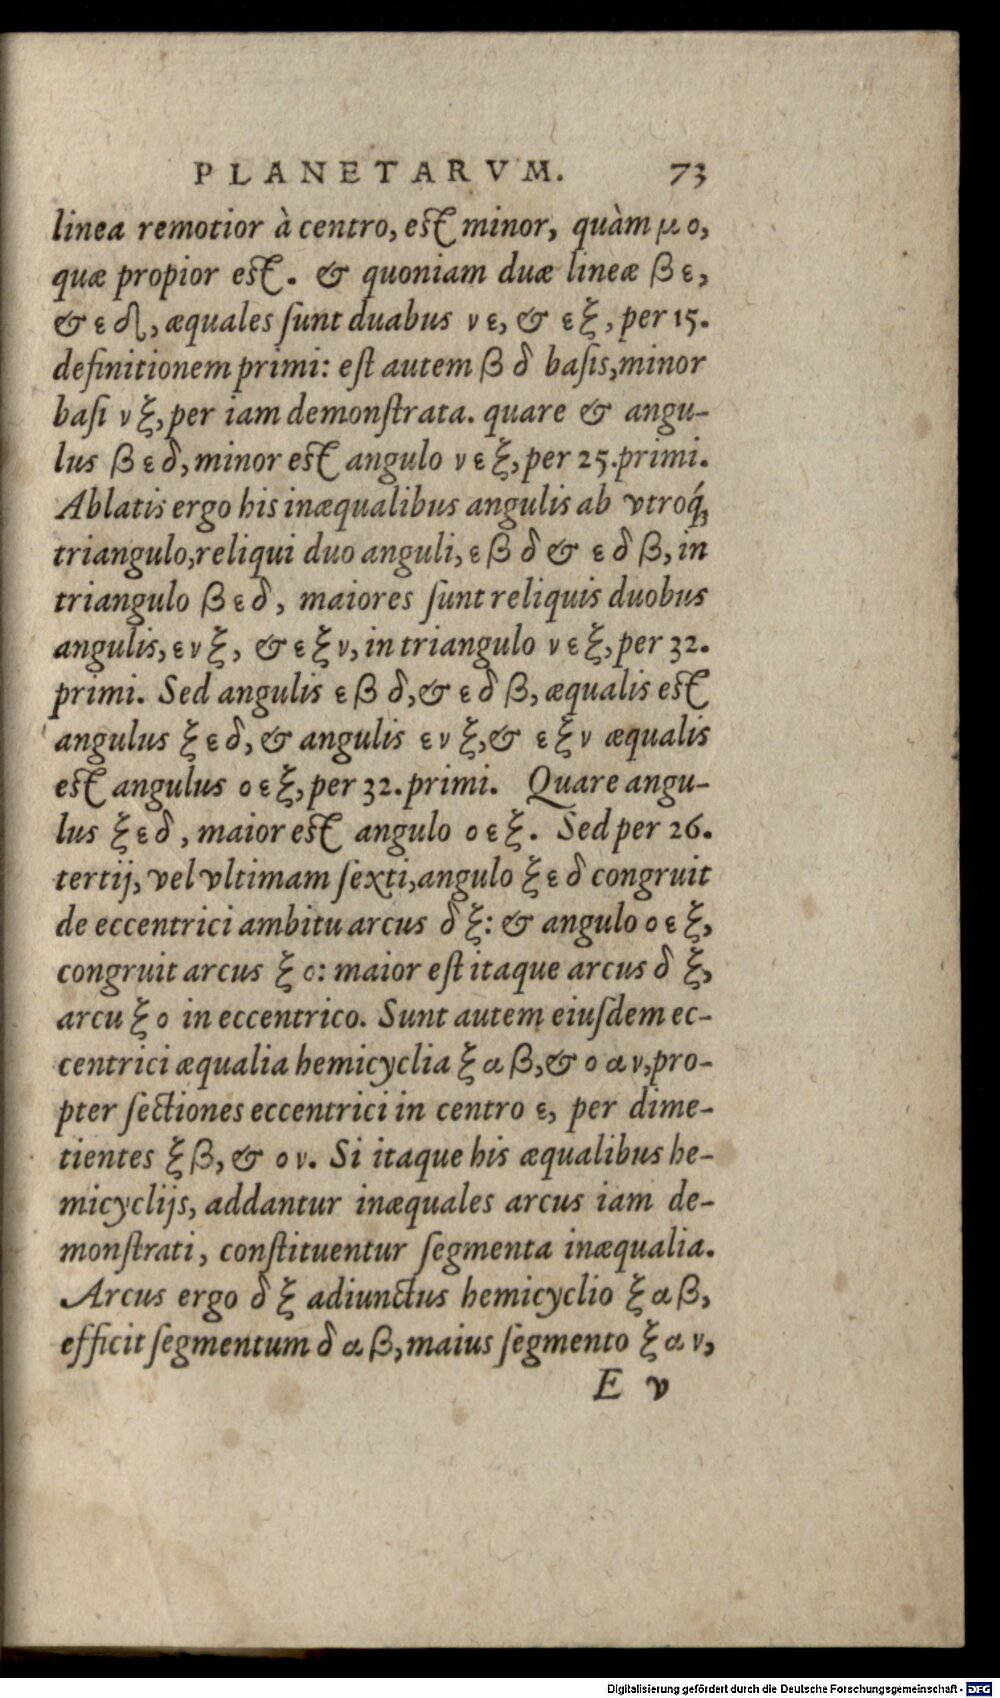 PLANETARVM. 73
linea remotior à centro, est minor, quàm μ ο,
quæ propior est. & quoniam duæ lineæ β ε,
& ε δ, æquales ſunt duabus ν ε, & ε ξ, per 15.
definitionem primi: eſt autem β δ baſis, minor
baſi ν ξ, per iam demonſtrata. quare & angu-
lus β ε δ, minor est angulo ν ε ξ, per 25. primi.
Ablatis ergo his inæqualibus angulis ab vtroq́;
triangulo, reliqui duo anguli, ε β δ & ε δ β, in
triangulo β ε δ, maiores ſunt reliquis duobus
angulis, ε ν ξ, & ε ξ ν, in triangulo ν ε ξ, per 32.
primi. Sed angulis ε β δ, & ε δ β, æqualis est
angulus ξ ε δ, & angulis ε ν ξ, & ε ξ ν æqualis
est angulus ο ε ξ, per 32. primi. Quare angu-
lus ξ ε δ, maior est angulo ο ε ξ. Sed per 26.
tertij, vel vltimam ſexti, angulo ξ ε δ congruit
de eccentrici ambitu arcus δ ξ: & angulo ο ε ξ,
congruit arcus ξ ο: maior eſt itaque arcus δ ξ,
arcu ξ ο in eccentrico. Sunt autem eiuſdem ec-
centrici æqualia hemicyclia ξ α β, & ο α ν, pro-
pter ſectiones eccentrici in centro ε, per dime-
tientes ξ β, & ο ν. Si itaque his æqualibus he-
micyclijs, addantur inæquales arcus iam de-
monſtrati, conſtituentur ſegmenta inæqualia.
Arcus ergo δ ξ adiunctus hemicyclio ξ α β,
efficit ſegmentum δ α β, maius ſegmento ξ α ν,
E v
Digitalisierung gefördert durch die Deutsche Forschungsgemeinschaft - DFG